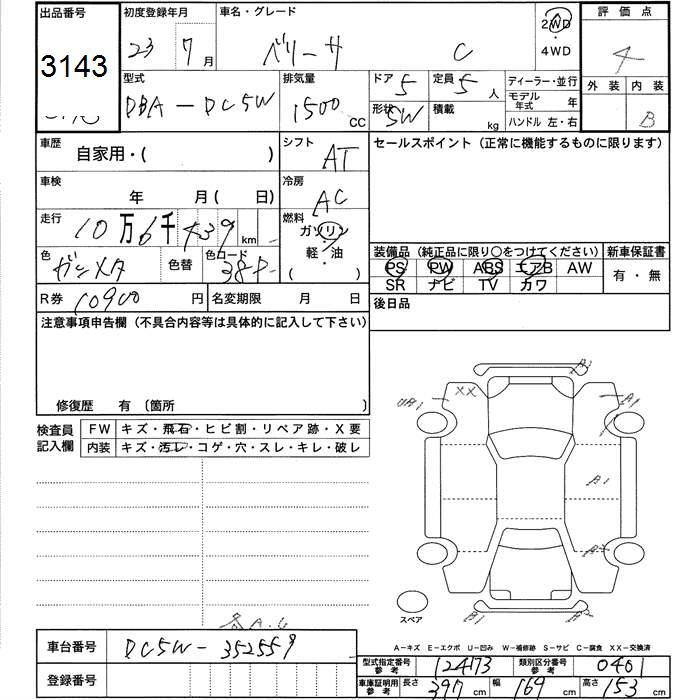 出品番号 初度登録年月 車名・グレード 評価点
3143 23 7月 ベリーサ C 2WD ・ 4WD 4
型式 排気量 ドア 5 定員 5人 ディーラー・並行 外装 内装
DBA-DC5W 1500 CC 形状 5W 積載 kg モデル年式 年 ハンドル 左・右 B
車歴 自家用・( ) シフト AT セールスポイント (正常に機能するものに限ります)
車検 年 月( 日) 冷房 AC
走行 10万6千439km 燃料 ガソリン・軽・油 ( )
色 ガンメタ 色替 色コード 38P
装備品 (純正品に限り○をつけてください) 新車保証書
PS PW ABS エアB AW 有・無
SR ナビ TV カワ
R券 10900円 名変期限 月 日 後日品
注意事項申告欄 (不具合内容等は具体的に記入して下さい)
修復歴 有 〔箇所 〕
検査員記入欄 FW キズ・飛石・ヒビ割・リペア跡・X要
内装 キズ・汚レ・コゲ・穴・スレ・キレ・破レ
A2
UA1 XX A1
B1
B1 B2
スペア
A-キズ E-エクボ U-凹み W-補修跡 S-サビ C-腐食 XX-交換済
車台番号 DC5W-352559
登録番号
型式指定番号 参考 12473 類別区分番号 参考 0401
車庫証明用 参考 長さ 397cm 幅 169cm 高さ 153cm